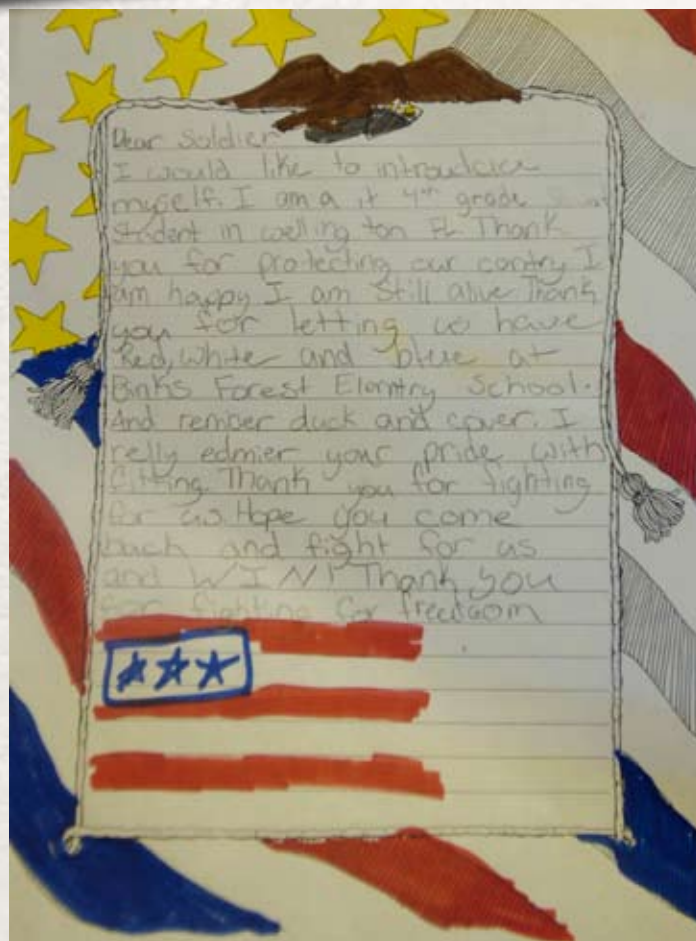 Dear Soldier
I would like to introudcie
myself. I am a it 4th grade
student in welling ton FL Thank
you for protecting our contry I
am happy I am still alive Thank
you for letting us have
Red, white and blue at
Binks Forest Elemtry School.
And rember duck and cover. I
relly edmier your pride with
fitting Thank you for fighting
for us Hope you come
back and fight for us
and WIN! Thank you
for fighting for freedom